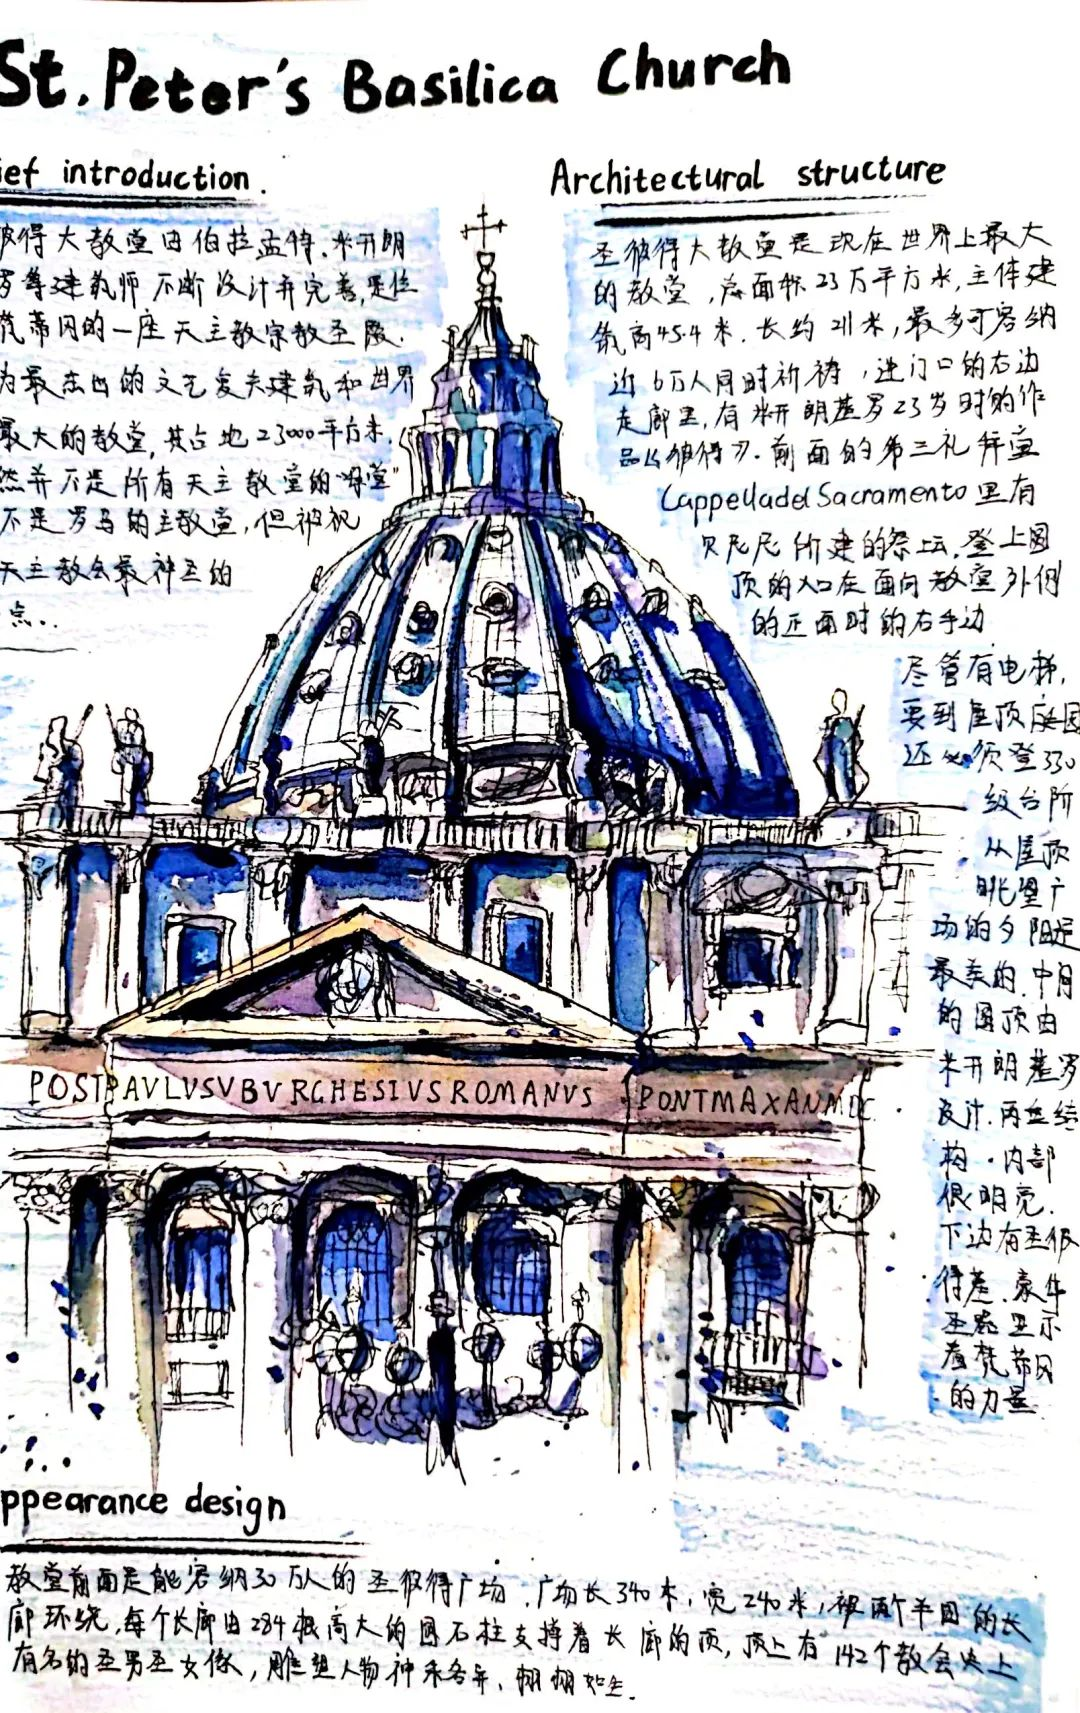 St. Peter's Basilica Church
ief introduction.
彼得大教堂由伯拉孟特、米开朗
罗等建筑师不断设计并完善,是位
梵蒂冈的一座天主教宗教圣殿.
为最杰出的文艺复兴建筑和世界
最大的教堂,其占地23000平方米.
然并不是所有天主教堂的"母堂"
不是罗马的主教堂,但被视
天主教会最神圣的
点..
Architectural structure
圣彼得大教堂是现在世界上最大
的教堂,总面积23万平方米,主体建
筑高45.4米.长约211米,最多可容纳
近6万人同时祈祷,进门口的右边
走廊里,有米开朗基罗23岁时的作
品《彼得》.前面的第三礼拜堂
Cappelladel Sacramento里有
贝尼尼所建的祭坛.登上圆
顶的入口在面向教堂外侧
的正面时的右手边
尽管有电梯,
要到屋顶庭园
还必须登330
级台阶
从屋顶
眺望广
场的夕阳是
最美的.中间
的圆顶由
米开朗基罗
设计.两
构.内部
很明亮.
下边有圣彼
得座.豪华
显示
着梵蒂冈
的力量
POSTPAVLVSVBVRGHESIVSROMANVS PONTMAXANMDC
ppearance design
教堂前面是能容纳30万人的圣彼得广场.广场长340米,宽240米,被两个半圆的长
廊环绕,每个长廊由284根高大的圆石柱支撑着长廊的顶,顶上有142个教会史上
有名的圣男圣女像,雕塑人物神采各异、栩栩如生.